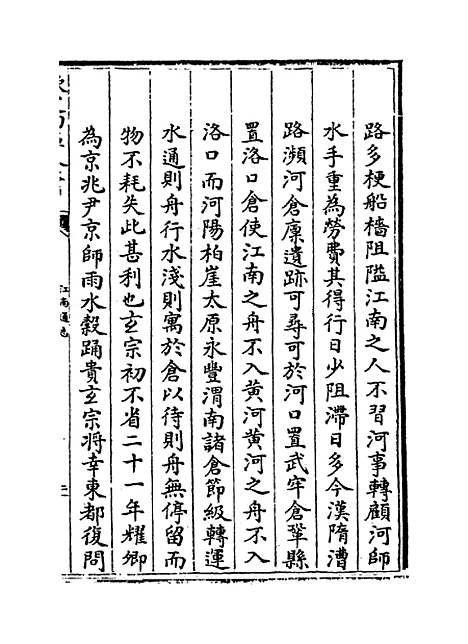 路多梗船檣阻隘江南之人不習河事轉顧河師
水手重為勞費其得行日少阻滯日多今漢隋漕
路瀕河倉廩遺跡可尋可於河口置武牢倉鞏縣
置洛口倉使江南之舟不入黄河黄河之舟不入
洛口而河陽柏崖太原永豐渭南諸倉節級轉運
水通則舟行水淺則寓於倉以待則舟無停留而
物不耗失此甚利也玄宗初不省二十一年耀卿
為京兆尹京師雨水穀踊貴玄宗將幸東都復問
江南通志